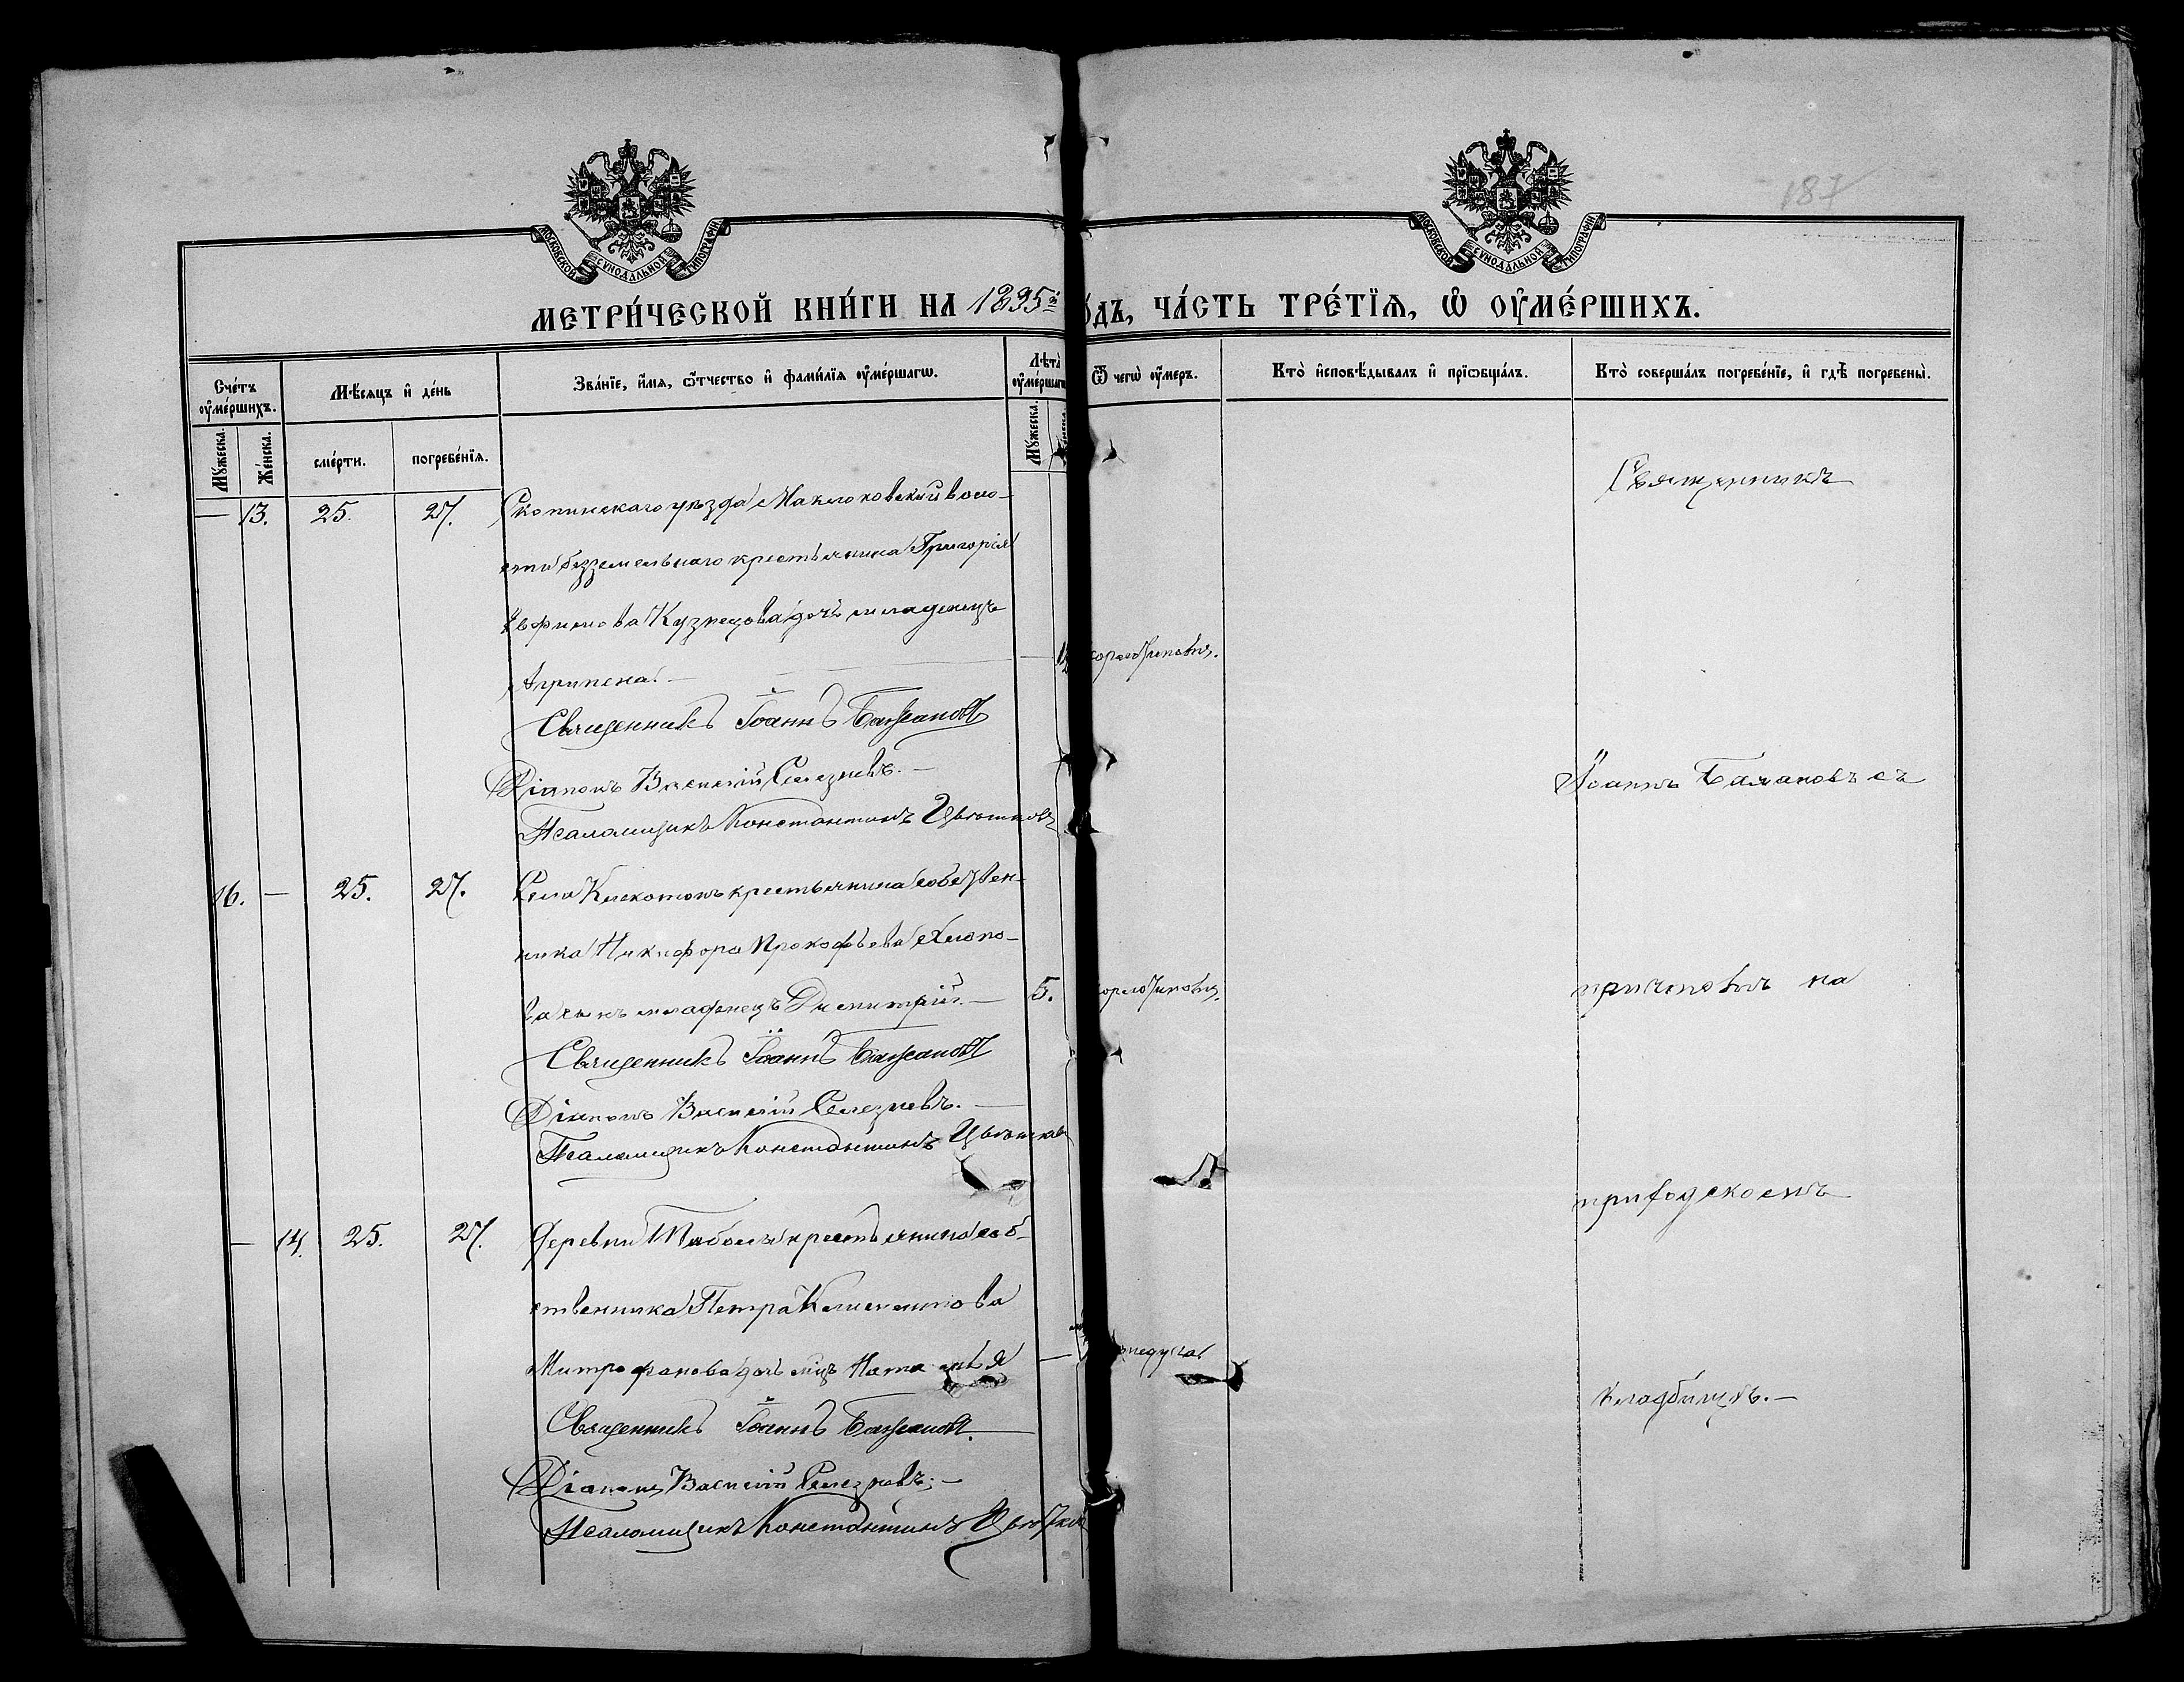 187
МОСКОВСКОЙ СѴНОДАЛЬНОЙ ТИПОГРАФІИ
МОСКОВСКОЙ СѴНОДАЛЬНОЙ ТИПОГРАФІИ
МЕТРИ́ЧЕСКОЙ КНИ́ГИ НА 1895й
ГО́ДЪ, ЧА́СТЬ ТРЕ́ТІѦ, Ѡ҆ ОУ҆МЕ́РШИХЪ.
Сче́тъ оу҆ме́ршихъ.
Мꙋ́жеска.
Же́нска.
Мѣ́сѧцъ и҆ де́нь
сме́рти.
погребе́нїѧ.
Зва́нїе, и҆́мѧ, ѻ҆́тчество и҆ фами́лїѧ оу҆ме́ршагѡ.
Лѣ́та оу҆ме́ршагѡ
Мꙋ́жеска.
Ѿ чегѡ̀ оу҆́меръ.
Кто̀ и҆сповѣ́дывалъ и҆ прїѡбща́лъ.
Кто̀ соверша́лъ погребе́нїе, и҆ гдѣ̀ погребены̀.
— 13. 25. 27. Скопинскаго уѣзда Маклоковской воло-
сти безземельнаго крестьянина Григорія
Ефимова Кузнецова дочь младенецъ
Агрипена. —
Священникъ Іоаннъ Баженовъ
Діаконъ Василій Селезневъ. —
Псаломщикъ Константинъ Цвѣтковъ
16. — 25. 27. Села крестьянина собствен-
ника Никифора Прокофьева Хлопо-
ва сынъ младенецъ Димитрій. — 5.
Священникъ Іоаннъ Баженовъ
Діаконъ Василій Селезневъ. —
Псаломщикъ Константинъ Цвѣтковъ
— 14. 25. 27. Деревни крестьянина соб-
ственника Петра Климентова
Митрофанова дочь млцъ Наталія —
Священникъ Іоаннъ Баженовъ.
Діаконъ Василій Селезневъ. —
Псаломщикъ Константинъ Цвѣтков
Священникъ
Іоаннъ съ
причтомъ на
приходскомъ
кладбищѣ. —